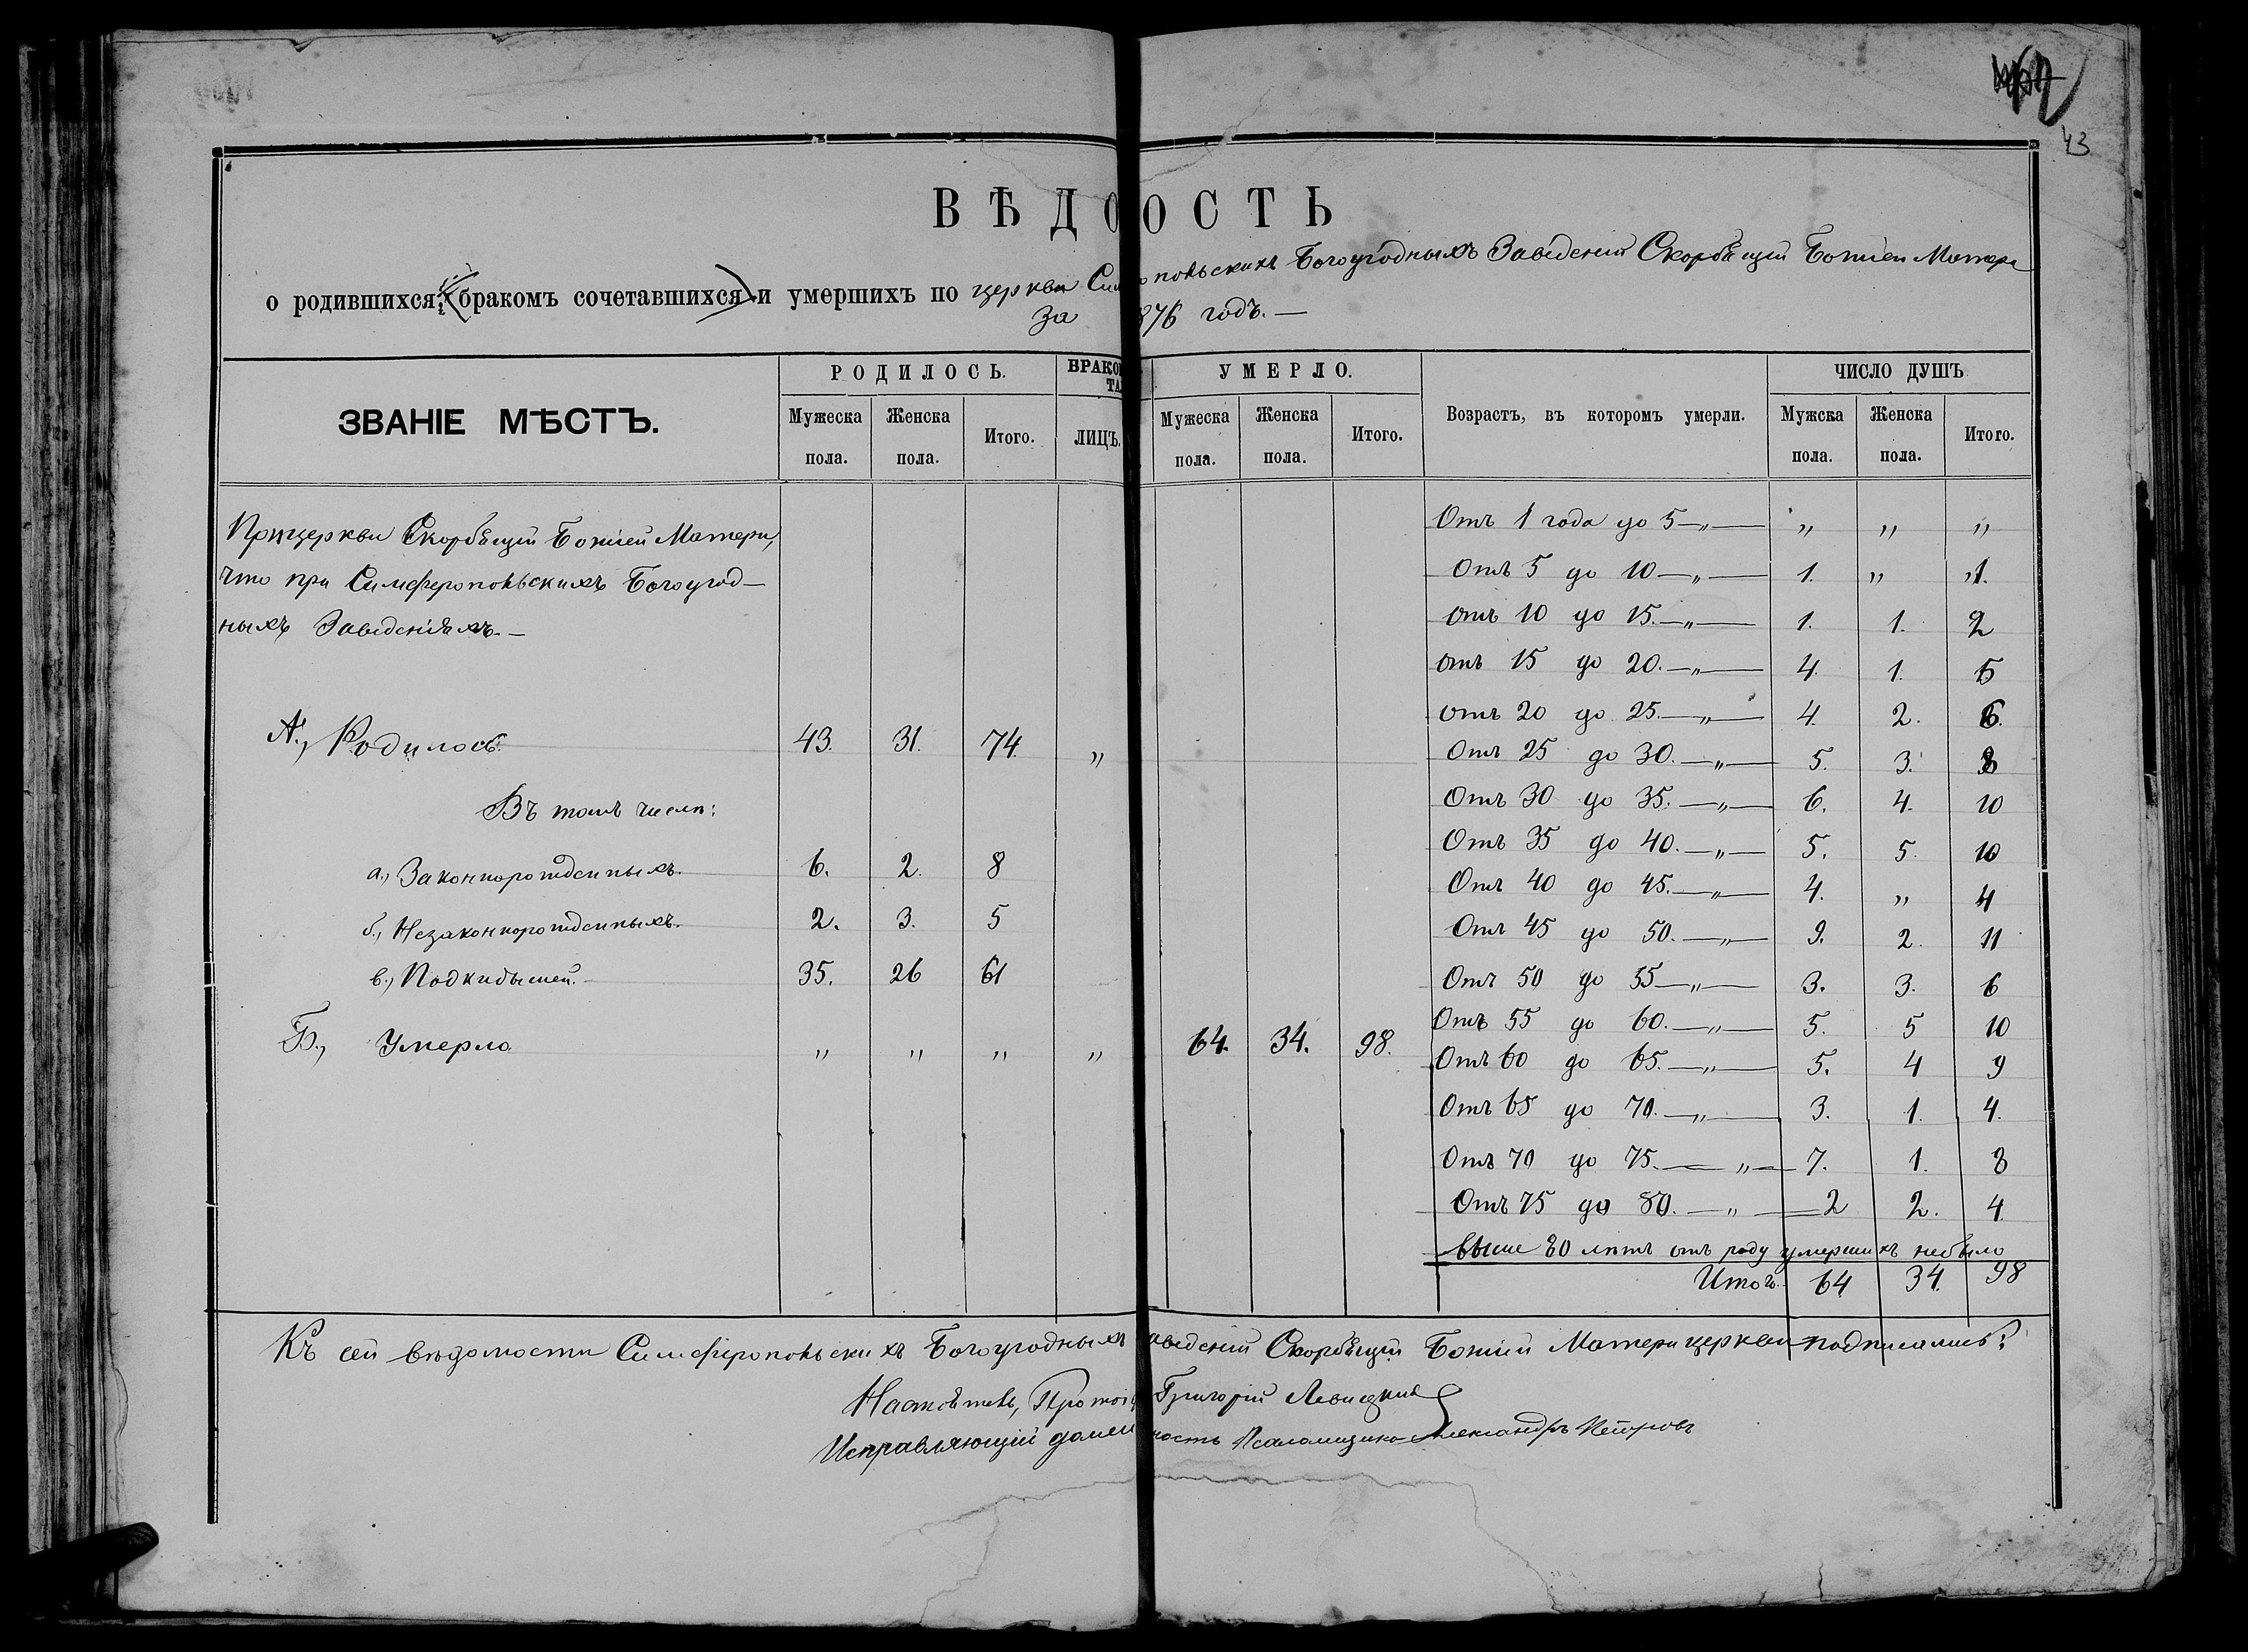 43
ВѢДО ОСТЬ
о родившихся, (бракомъ сочетавшихся) и умершихъ по церкви Сим опольскихъ Богоугодныхъ Заведенiй Скорбящей Божiей Матери
За 876 годъ. —
ЗВАНІЕ МѢСТЪ.
РОДИЛОСЬ.
Мужеска пола.
Женска пола.
Итого.
БРАКО
ТА
ЛИЦЪ.
УМЕРЛО.
Мужеска пола.
Женска пола.
Итого.
Возрастъ, въ которомъ умерли.
ЧИСЛО ДУШЪ
Мужска пола.
Женска пола.
Итого.
При церкви Скорбящей Божiей Матери,
что при Симферопольскихъ Богоугод-
ныхъ Заведенiяхъ. —
А., Родилось. 43. 31. 74. „
Въ томъ числѣ:
а., Законнорожденныхъ. 6. 2. 8
б., Незаконнорожденныхъ. 2. 3. 5
в., Подкидышей. 35. 26 61
Б., Умерло „ „ „ „ 64. 34. 98.
Отъ 1 года до 5 — „ — „ „ „
Отъ 5 до 10 — „ — 1. „ 1.
Отъ 10 до 15. — „ — 1. 1. 2
Отъ 15 до 20. — „ — 4. 1. 5
Отъ 20 до 25. — „ — 4. 2. 6.
Отъ 25 до 30. — „ — 5. 3. 8
Отъ 30 до 35. — „ — 6. 4. 10
Отъ 35 до 40. — „ — 5. 5. 10
Отъ 40 до 45. — „ — 4. „ 4
Отъ 45 до 50. — „ — 9. 2. 11
Отъ 50 до 55 — „ — 3. 3. 6
Отъ 55 до 60. — „ — 5. 5 10
Отъ 60 до 65. — „ — 5. 4 9
Отъ 65 до 70. — „ — 3. 1. 4.
Отъ 70 до 75. — „ — 7. 1. 8
Отъ 75 до 80. — „ — 2 2. 4.
Выше 80 лѣтъ отъ роду умершихъ небыло
Итого. 64 34. 98
Къ сей вѣдомости Симферопольскихъ Богоугодныхъ аведенiй Скорбящей Божiей Матери церкви подписались:
Настоятель, Протоi Григорiй Левицкiй
Исправляющiй долж ность Псаломщика Александръ Петровъ